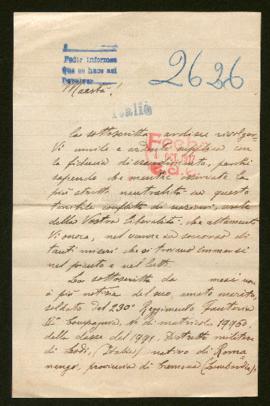 Pedir informes
que se hace así
2626
Maestà!
Italia
La sottoscritta ardisce rivolger
Vi umile e supplica con
la fiducia di perchè
sapendo che mentre osservate la
più stretta neutralità in questo
terribile conflitto di nazioni,
della Vostra che altamente
Vi onora, nel venire in soccorso di
tanti miseri che si trovano immersi
nel pianto e nel lutto.
La sottoscritta da mesi non
à più notizia del suo amato marito,
soldato del 230° Reggimento Fanteria
Compagnia, di matricola
della classe del 1891. Distretto militare
di Lodi, (Italia), nativo di Roma-
nengo, provincia di Cremona (Lombardia),